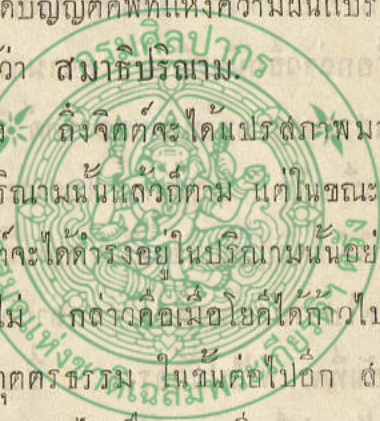 คบัญญัติศัพท์แห่งความผันแปร
ว่า สมาธิปริณาม.
ง ถึงจิตต์จะได้แปรสภาพมา
ริณามนั้นแล้วก็ตาม แต่ในขณะ
ต์จะได้ดำรงอยู่ในปริณามนั้นอย่
ไม่ กล่าวคือเมื่อโยคีได้ก้าวไป
ุตตรธรรม ในขั้นต่อไปอีก ส
กรมศิลปากร
แห่งชาติเฉลิมพระเกียรติ